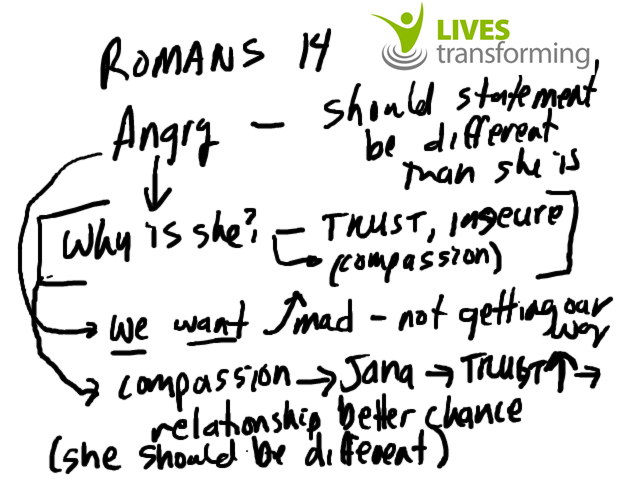 ROMANS 14
LIVES
transforming
Angry - should statement,
be different
than she is
Why is she? - TRUST, insecure
(compassion)
We want mad - not getting our
way
compassion → Jana → TRUST ↑ →
relationship better chance
(she should be different)